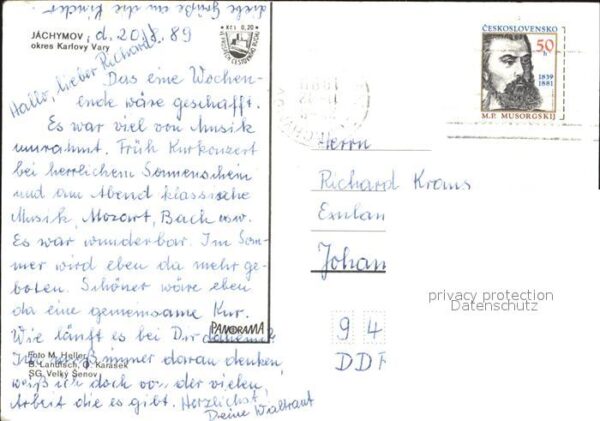 liebe Grüße an die Kinder
JÁCHYMOV, d. 20.8.89
okres Karlovy Vary
Kčs 0,20
Hallo, lieber Richard!
Das eine Wochen-
ende wäre geschafft.
Es war viel von Musik
umrahmt. Früh Kurkonzert
bei herrlichem Sonnenschein
und am Abend klassische
Musik, Mozart, Bach usw.
Es war wunderbar. Im Som-
mer wird eben da mehr ge-
boten. Schöner wäre eben
da eine gemeinsame Kur.
Wie läuft es bei Dir daheim?
Ich muß immer daran denken,
weiß ich doch von der vielen
Arbeit die es gibt. Herzlichst,
Deine Waltraut
PANORAMA
Foto M. Heller,
B. Landisch, J. Karásek
SG Velký Šenov
ČESKOSLOVENSKO
50 h
1839
1881
M.P. MUSORGSKIJ
Herrn
Richard Kraus
Exulan
Johan
9 4
DDR
privacy protection
Datenschutz